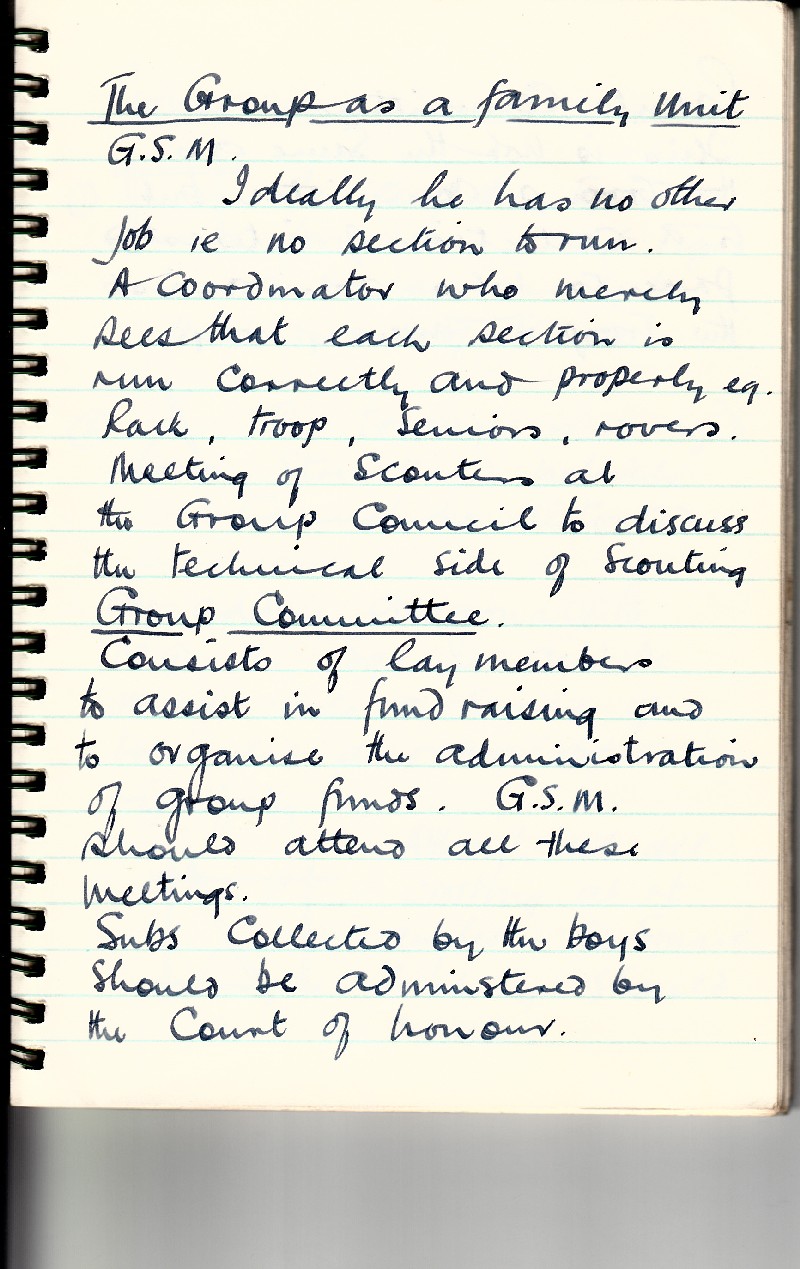 The Group as a family Unit
G.S.M.
Ideally he has no other
Job ie no section to run.
A Coordinator who merely
sees that each section is
run correctly and properly eg.
Pack, troop, Seniors, rovers.
Meeting of Scouters at
the Group Council to discuss
the technical side of Scouting
Group Committee.
Consists of lay members
to assist in fund raising and
to organise the administration
of group funds. G.S.M.
should attend all these
meetings.
Subs Collected by the boys
Should be administered by
the Court of honour.